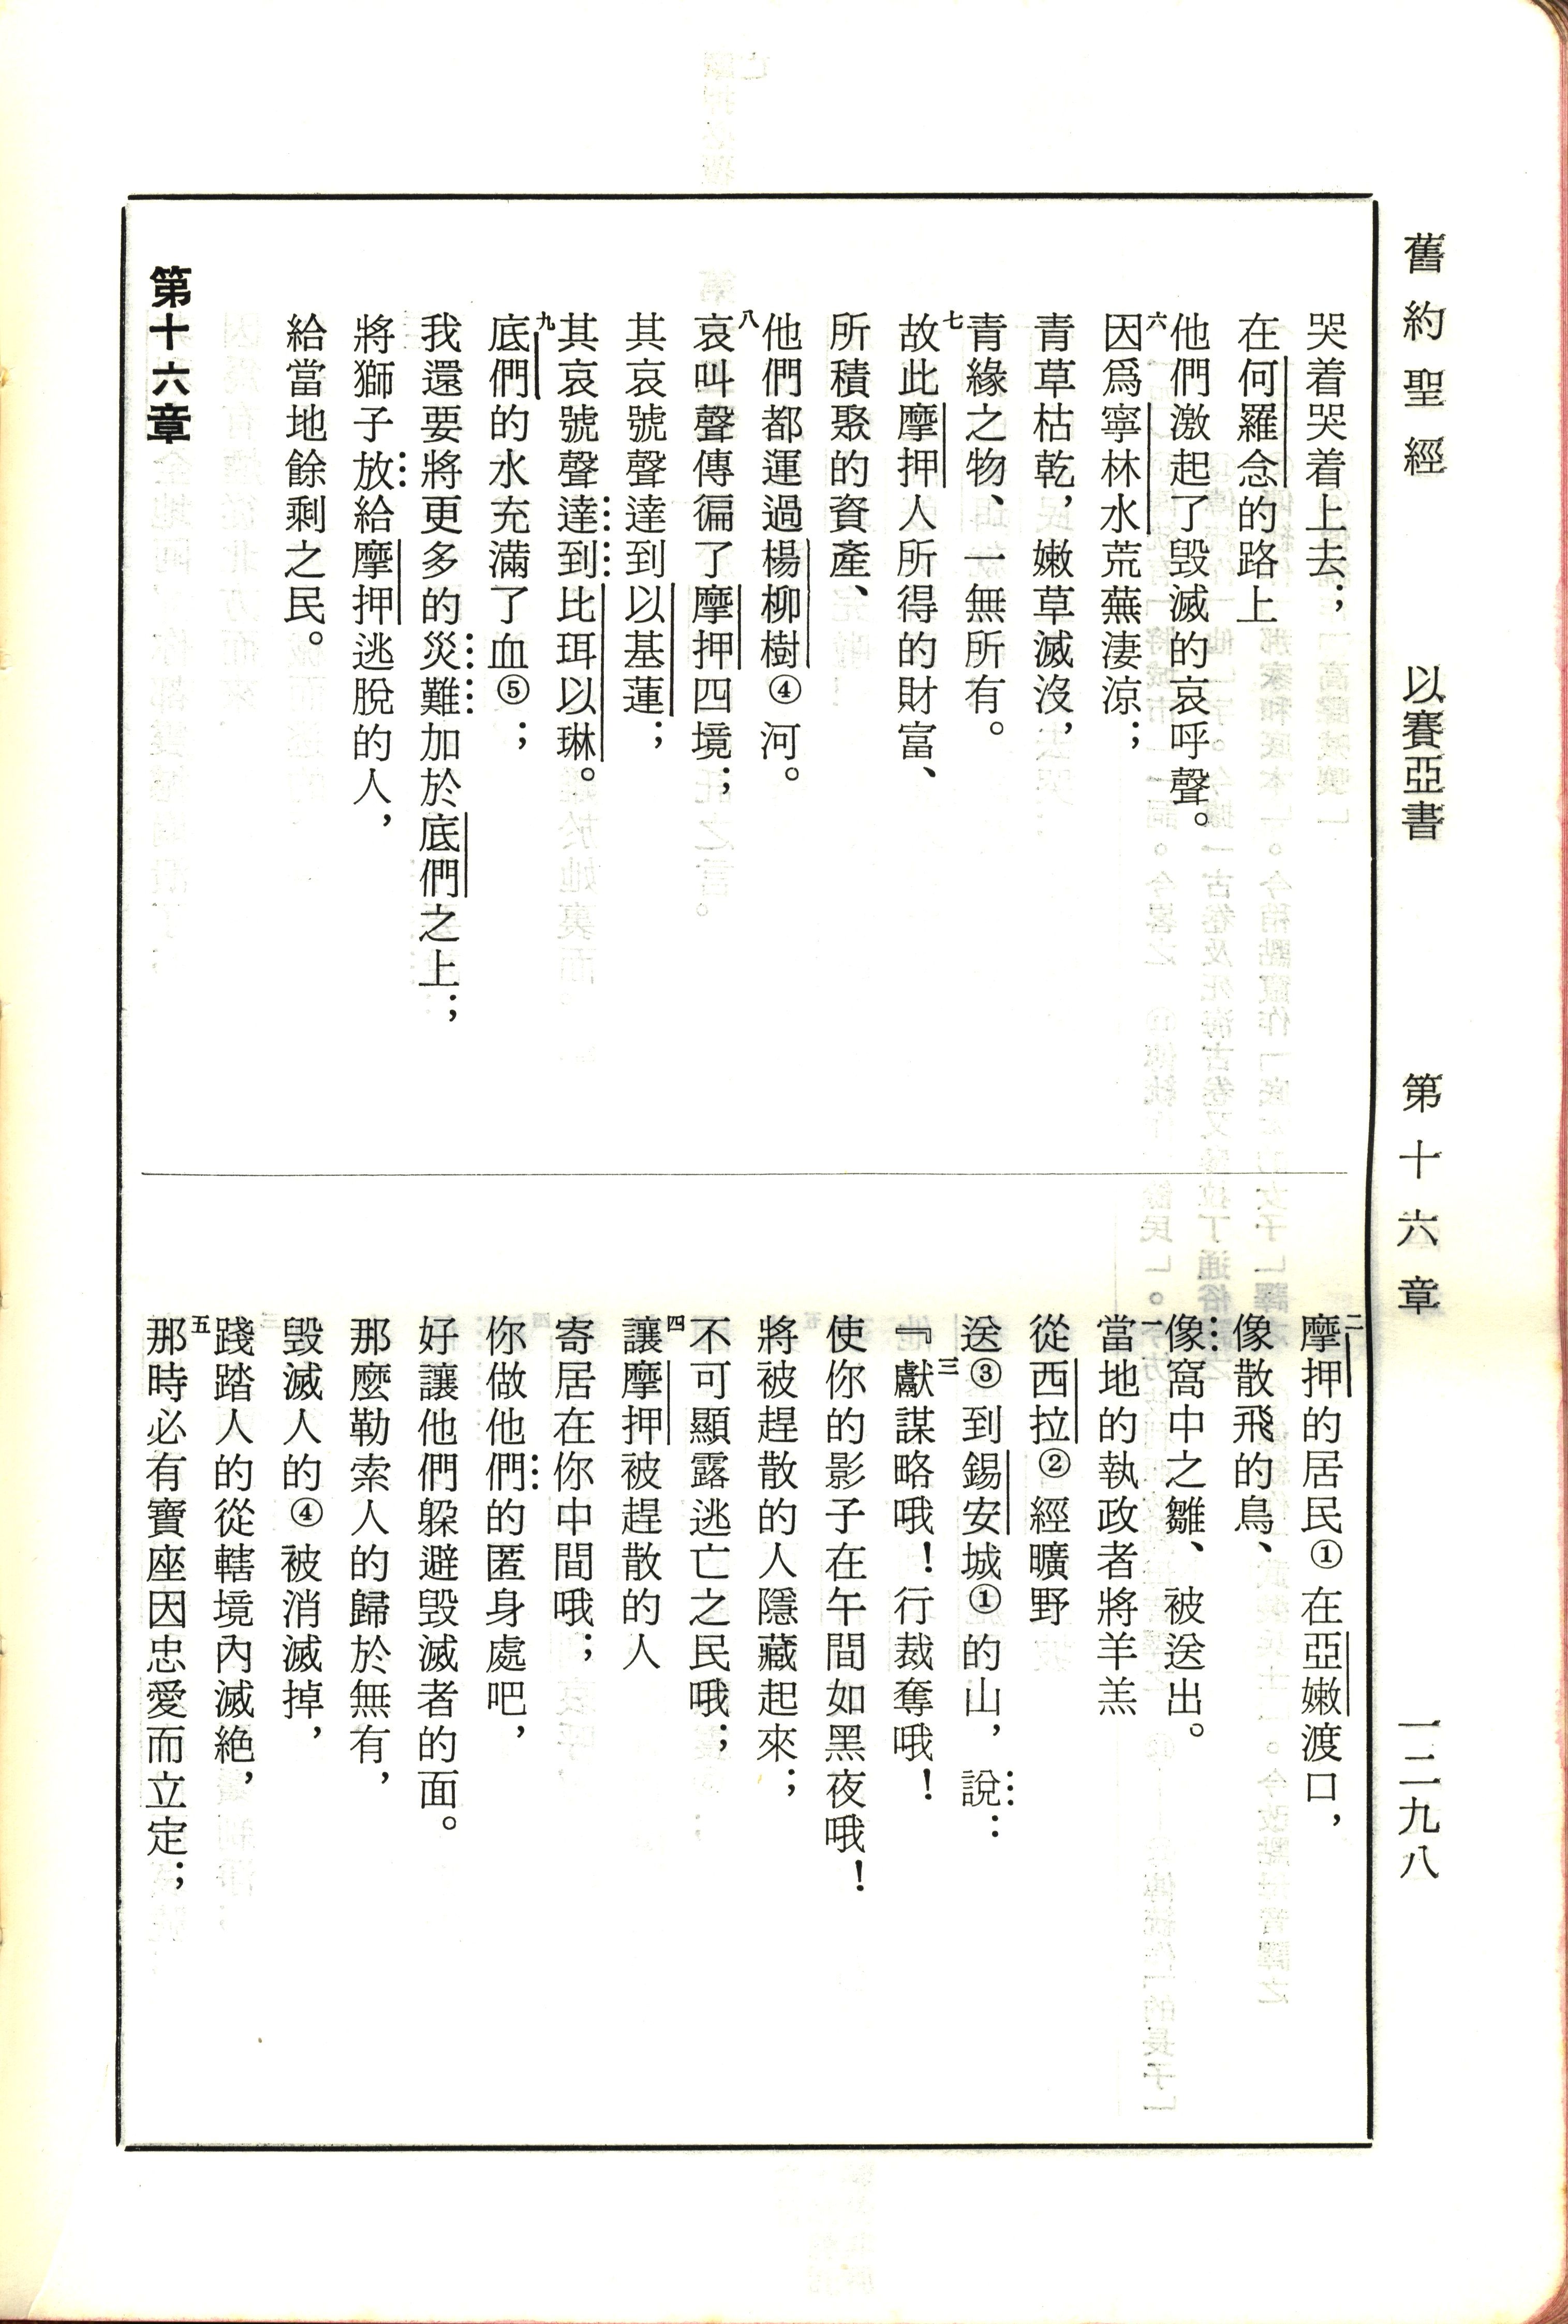 舊約聖經　以賽亞書　第十六章　一二九八
哭着哭着上去；
在何羅念的路上
他們激起了毀滅的哀呼聲。
六因爲寧林水荒蕪淒涼；
青草枯乾，嫩草滅沒，
青緣之物、一無所有。
七故此摩押人所得的財富、
所積聚的資產、
他們都運過楊柳樹④河。
八哀叫聲傳徧了摩押四境；
其哀號聲達到以基蓮；
其哀號聲達到比珥以琳。
九底們的水充滿了血⑤；
我還要將更多的災難加於底們之上；
將獅子放給摩押逃脫的人，
給當地餘剩之民。
第十六章
二摩押的居民①在亞嫩渡口，
像散飛的鳥、
像窩中之雛、被送出。
一當地的執政者將羊羔
從西拉②經曠野
送③到錫安城①的山，說：
三『獻謀略哦！行裁奪哦！
使你的影子在午間如黑夜哦！
將被趕散的人隱藏起來；
不可顯露逃亡之民哦；
四讓摩押被趕散的人
寄居在你中間哦；
你做他們的匿身處吧，
好讓他們躲避毀滅者的面。
那麼勒索人的歸於無有，
毀滅人的④被消滅掉，
踐踏人的從轄境內滅絕，
五那時必有寶座因忠愛而立定；